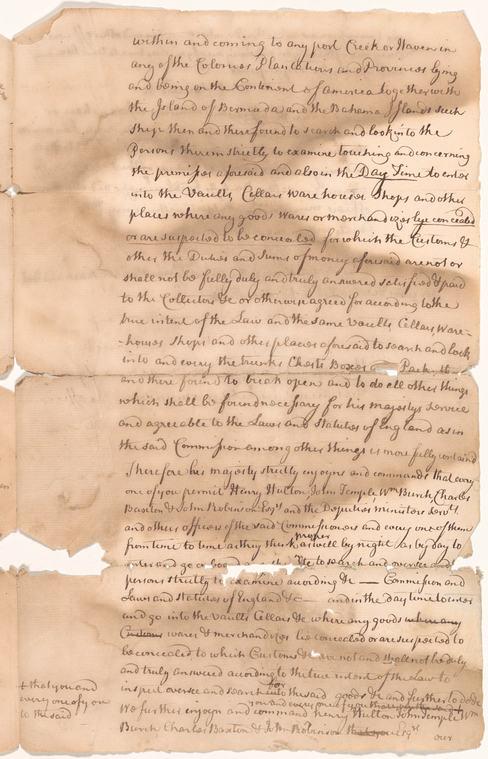 within and coming to any port Creek or Haven in
any of the Colonies Plantations and Provinces lying
and being on the Continent of America together with
the Island of Bermuda and the Bahama Islands such
Ships then and there found to search and look into the
Persons therein strictly to examine touching and concerning
the premises aforesaid and also in the Day Time to enter
into the Vaults Cellars ware houses Shops and other
places where any goods wares or merchandizes lye concealed
or are suspected to be concealed for which the Customs &
other the Duties and Sums of money aforesaid are not or
shall not be fully duly and truly answered satisfied & paid
to the Collectors &c or otherwise agreed for according to the
true intent of the Law and the same Vaults Cellars Ware-
-houses Shops and other places aforesaid to search and look
into and every the trunks Chests Boxes Packs
and there found to break open and to do all other things
which shall be found necessary for his majestys Service
and agreeable to the Laws and Statutes of England as in
the said Commission among other things is more fully containd
Therefore his majesty strictly enjoyns and commands that every
one of you permit Henry Hulton John Temple Wm Burch Charles
Paxton & John Robinson Esqrs and the Deputies ministers Servts
and others officers of the said Commissioners and every one of them
from time to time at they think proper as well by night as by day to
enter and go on board to search and oversee and
persons strictly to examine according &c — Commission and
Laws and statutes of England &c — and in the day time to enter
and go into the vaults Cellars &c where any goods where any
Customs wares & merchandizes lie concealed or are suspected to
be concealed to which Customs &c are not and shall not be duly
and truly answered according to the true intent of the Law to
inspect oversee and search for the said goods &c and further to do &c
We further enjoyn and command you and every one of you Henry Hulton John Temple Wm
Burch Charles Paxton & John Robinson that you Esqrs
our
+ that you and
every one of you
to the said